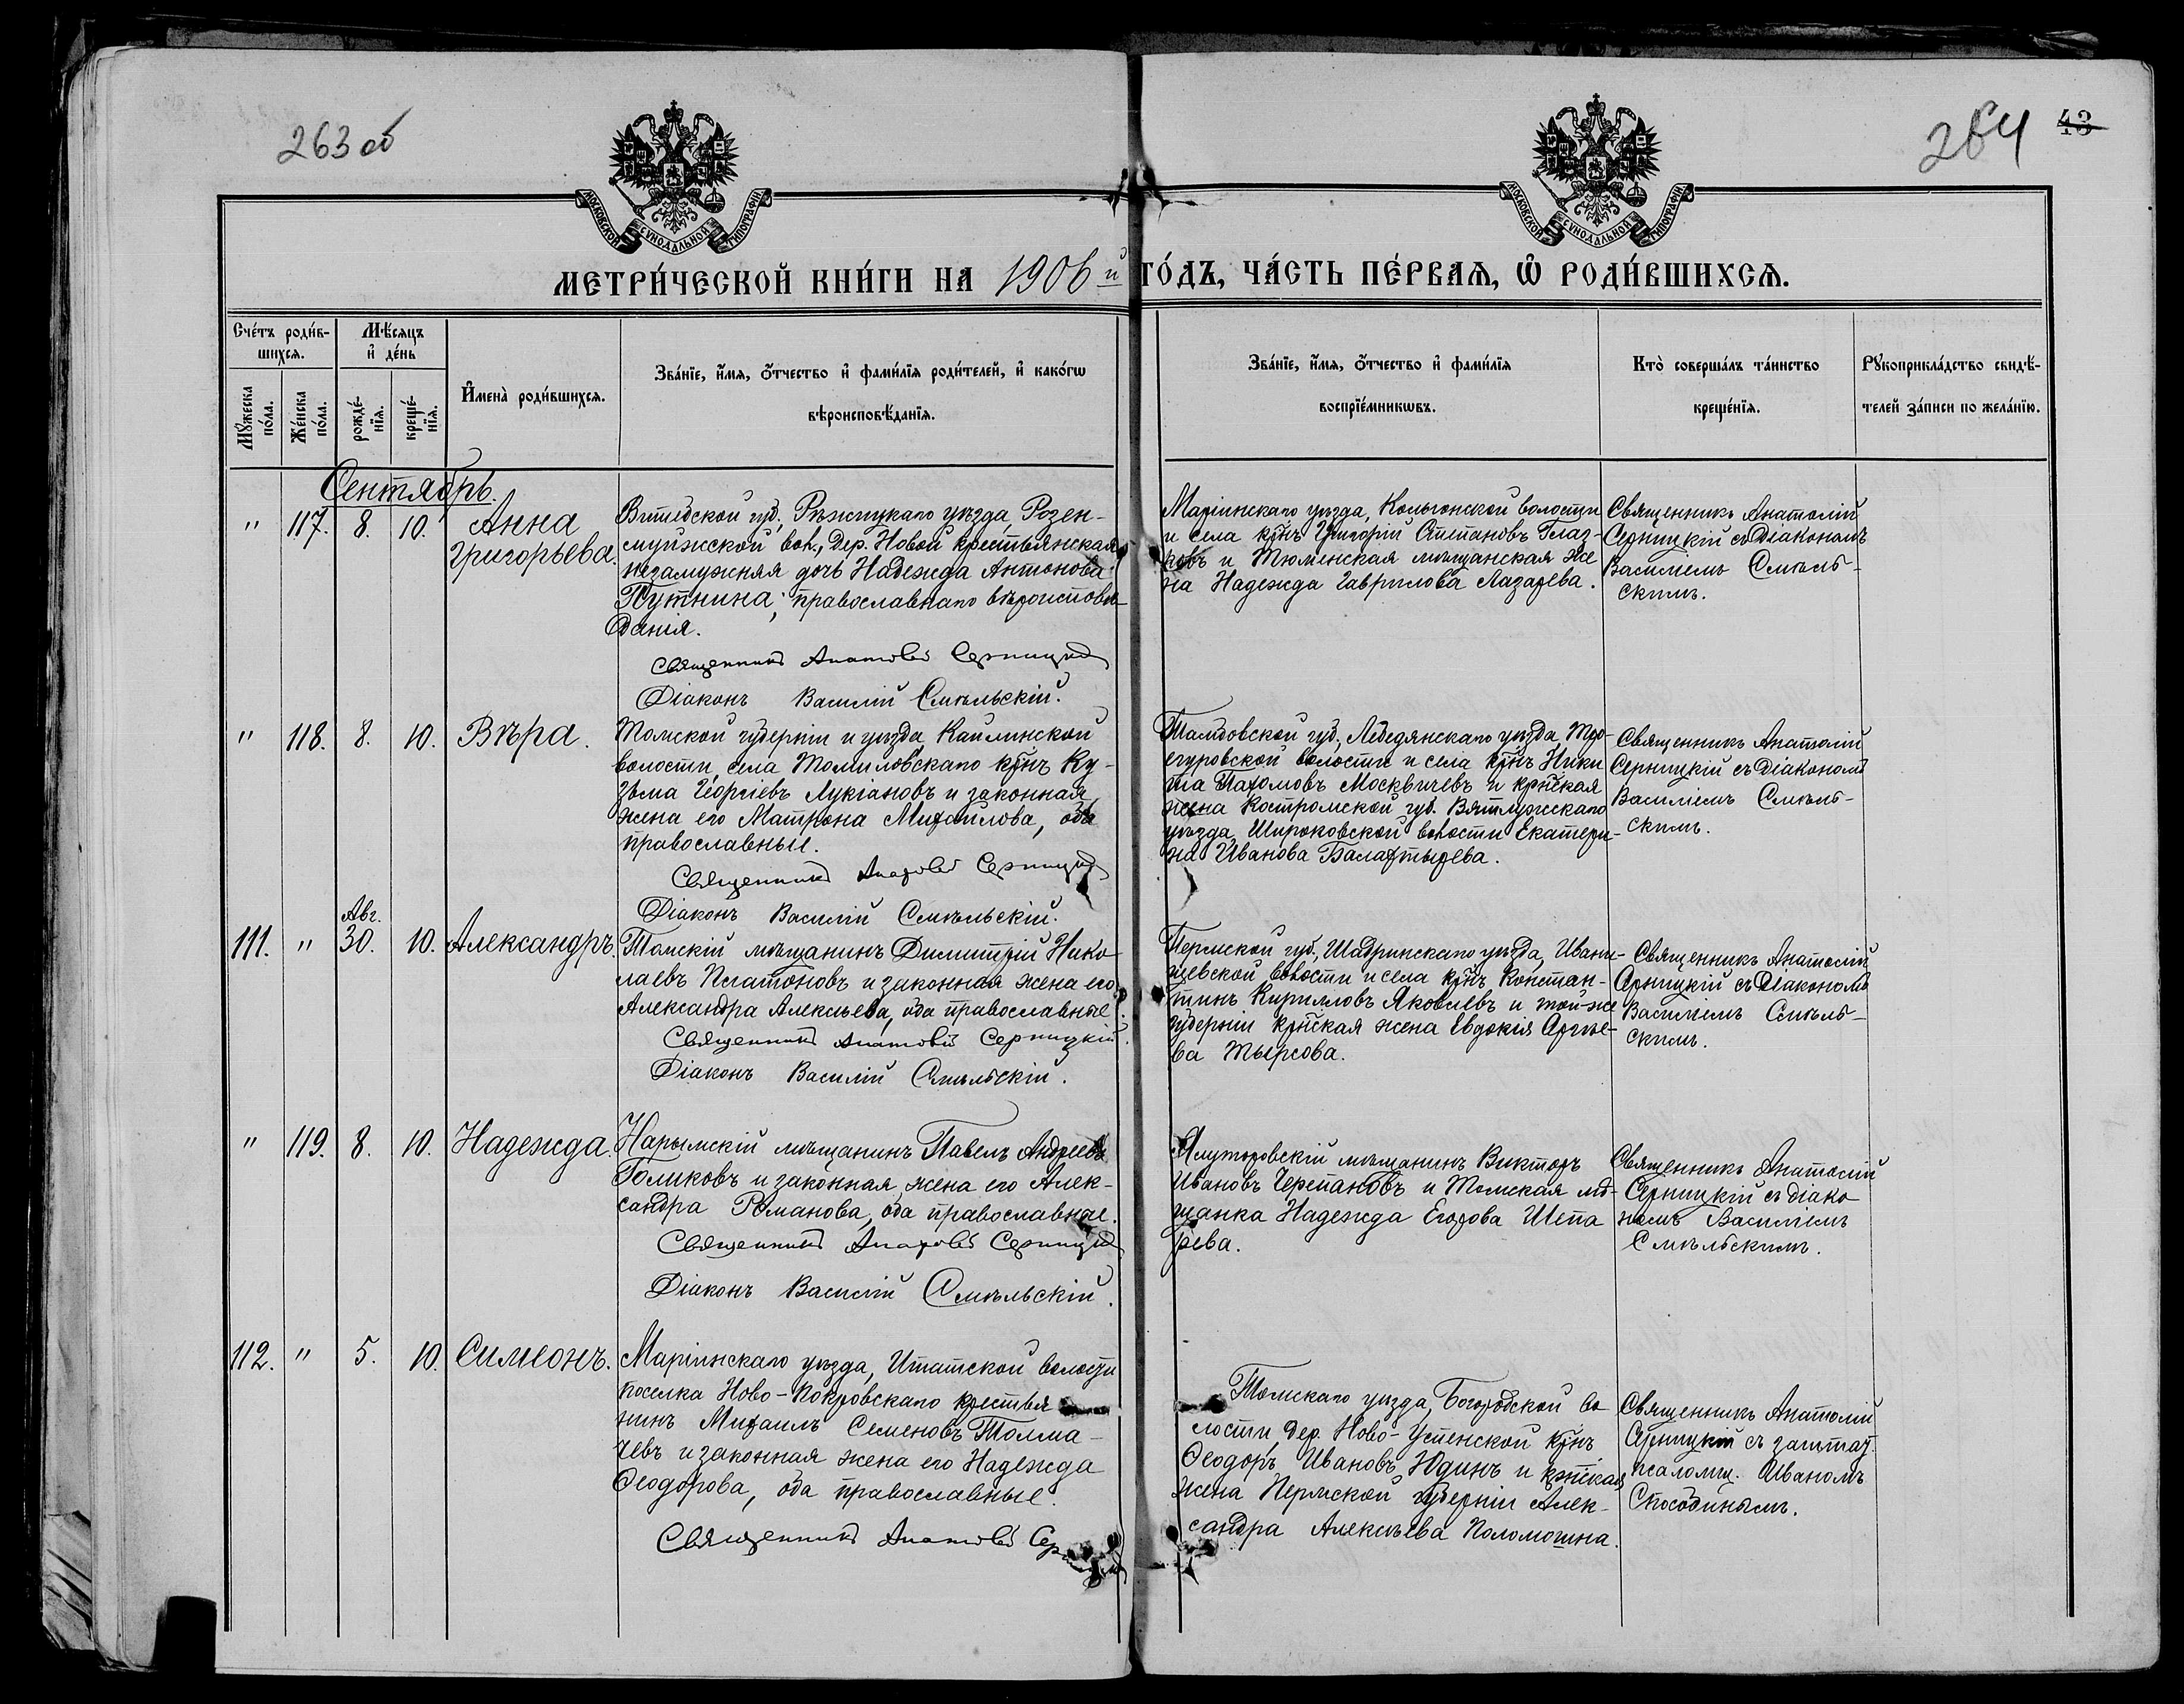 263 об
264
43
МОСКОВСКОЙ СѴНОДАЛЬНОЙ ТИПОГРАФІИ
МОСКОВСКОЙ СѴНОДАЛЬНОЙ ТИПОГРАФІИ
МЕТРИ́ЧЕСКОЙ КНИ́ГИ НА 1906 й ГО́ДЪ, ЧА́СТЬ ПЕ́РВАѦ, Ѡ҆ РОДИ́ВШИХСѦ.
Сче́тъ роди́в-
шихсѧ.
Мꙋ́жеска по́ла.
Же́нска по́ла.
Мѣ́сѧцъ
и҆ де́нь
рожде́-
нїѧ.
креще́-
нїѧ.
И҆мена̀ роди́вшихсѧ.
Зва́нїе, и҆́мѧ, ѻ҆́тчество и҆ фами́лїѧ роди́телей, и҆ како́гѡ
вѣроисповѣ́данїѧ.
Зва́нїе, и҆́мѧ, ѻ҆́тчество и҆ фами́лїѧ
воспрїе́мникѡвъ.
Кто̀ соверша́лъ та́инство
креще́нїѧ.
Рꙋкоприкла́дство свидѣ́-
телей за́писи по жела́нїю.
Сентябрь.
" 117. 8. 10. Анна
Григорьева.
Витебской губ., Рѣжицкаго уѣзда, Розен-
муйжской вол., дер. Новой крестьянская
незамужняя дочь Надежда Антонова
Путнина, православнаго вѣроисповѣ-
данія.
Священникъ Анатолій Серницкій
Діаконъ Василій Смѣльскій.
Маріинскаго уѣзда, Кольчонской волости
и села кр҃нъ Григорій Степановъ Глаз-
ковъ и Тюменская мѣщанская же
на Надежда Гаврилова Лазарева.
Священникъ Анатолій
Серницкій съ Діакономъ
Василіемъ Смѣль-
скимъ.
" 118. 8. 10. Вѣра.
Томской губерніи и уѣзда Кайлинской
волости, села Томиловскаго кр҃нъ Ку-
зьма Георгіевъ Лукіановъ и законная
жена его Матрона Михаилова, оба
православные.
Священникъ Анатолій Серницкій
Діаконъ Василій Смѣльскій.
Тамбовской губ., Лебедянскаго уѣзда Тро-
екуровской волости и села кр҃нъ Ники
та Пахомовъ Москвичевъ и кр҃нская
жена Костромской губ. Вятлужскаго
уѣзда Широковской волости Екатери-
на Иванова Балахтырева.
Священникъ Анатолій
Серницкій съ Діакономъ
Василіемъ Смѣль-
скимъ.
111. " Авг. 30. 10. Александръ.
Томскій мѣщанинъ Димитрій Нико
лаевъ Платоновъ и законная жена его
Александра Алексѣева, оба православные.
Священникъ Анатолій Серницкій.
Діаконъ Василій Смѣльскій.
Пермской губ., Шадринскаго уѣзда, Ивани-
щевской волости и села кр҃нъ Констан-
тинъ Кирилловъ Яковлевъ и той-же
губерніи кр҃нская жена Евдокія Артье-
ва Тырсова.
Священникъ Анатолій
Серницкій съ Діакономъ
Василіемъ Смѣль-
скимъ.
" 119. 8. 10. Надежда.
Нарымскій мѣщанинъ Павелъ Андреевъ
Голиковъ и законная жена его Алек-
сандра Романова, оба православные.
Священникъ Анатолій Серницкій
Діаконъ Василій Смѣльскій.
Ялуторовскій мѣщанинъ Викторъ
Ивановъ Черепановъ и Томская мѣ-
щанка Надежда Егорова Шепа
рева.
Священникъ Анатолій
Серницкій съ діако
номъ Василіемъ
Смѣльскимъ.
112. " 5. 10. Симеонъ.
Маріинскаго уѣзда, Итатской волости
поселка Ново-Покровскаго крестья
нинъ Михаилъ Семеновъ Толма-
чевъ и законная жена его Надежда
Ѳеодорова, оба православные.
Священникъ Анатолій Серницкій
Томскаго уѣзда, Богородской во
лости, дер. Ново-Успенской кр҃нъ
Ѳеодоръ Ивановъ Юдинъ и кр҃нская
жена Пермской губерніи Алек-
сандра Алексѣева Поломошна.
Священникъ Анатолій
Серницкій съ заштат.
псаломщ. Иваномъ
Способинымъ.